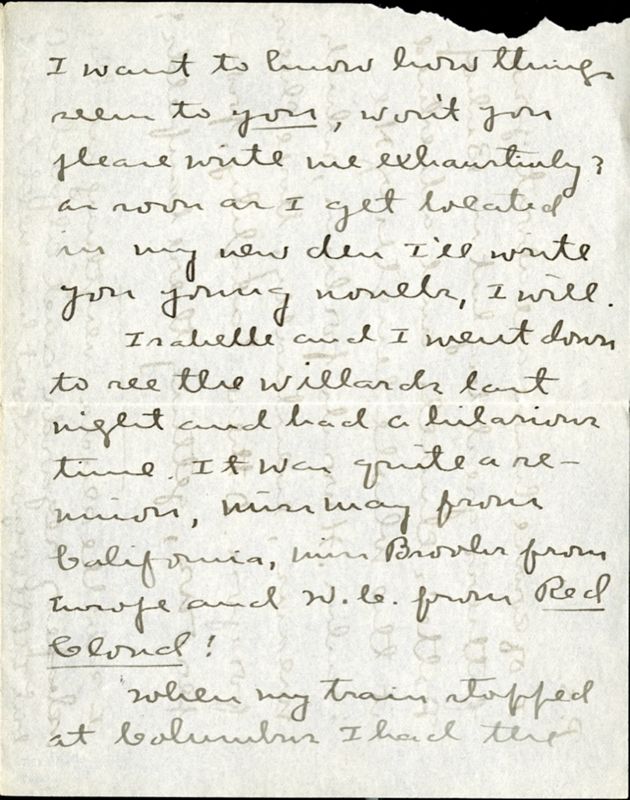 I want to know how things
seem to you, won't you
please write me exhaustively?
as soon as I get located
in my new den I'll write
you young novels, I will.
Isabelle and I went down
to see the Willards last
night and had a hilarious
time. It was quite a re-
union, Miss May from
California, Miss Brooks from
Europe and W.C. from Red
Cloud!
When my train stopped
at Columbus I had the